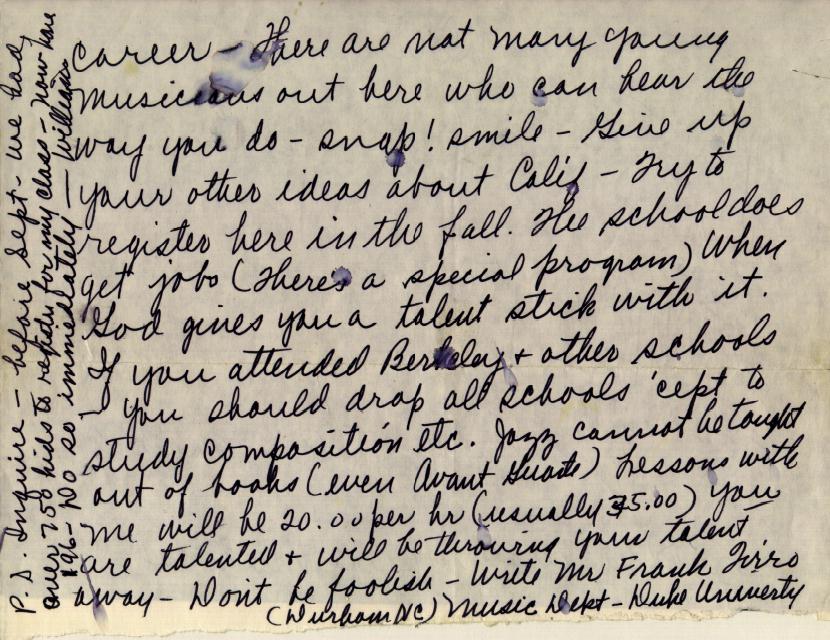 career - There are not many young
musicians out here who can hear the
way you do - snap! smile - Give up
your other ideas about Calif - Try to
register here in the fall. The school does
get jobs (There's a special program) When
God gives you a talent stick with it.
If you attended Berkeley + other schools
you should drop all schools 'cept to
study composition etc. Jazz cannot be taught
out of books (even Avant Guarde) Lessons with
me will be 20.00 per hr (usually 35.00) You
are talented + will be throwing your talent
away - Dont be foolish - Write Mr Frank Tirro
(Durham NC) Music Dept - Duke Univerty
P.S. Inquire - before Sept - we had
over 750 kids to register for my class - now have
196 - Do so immediately - William